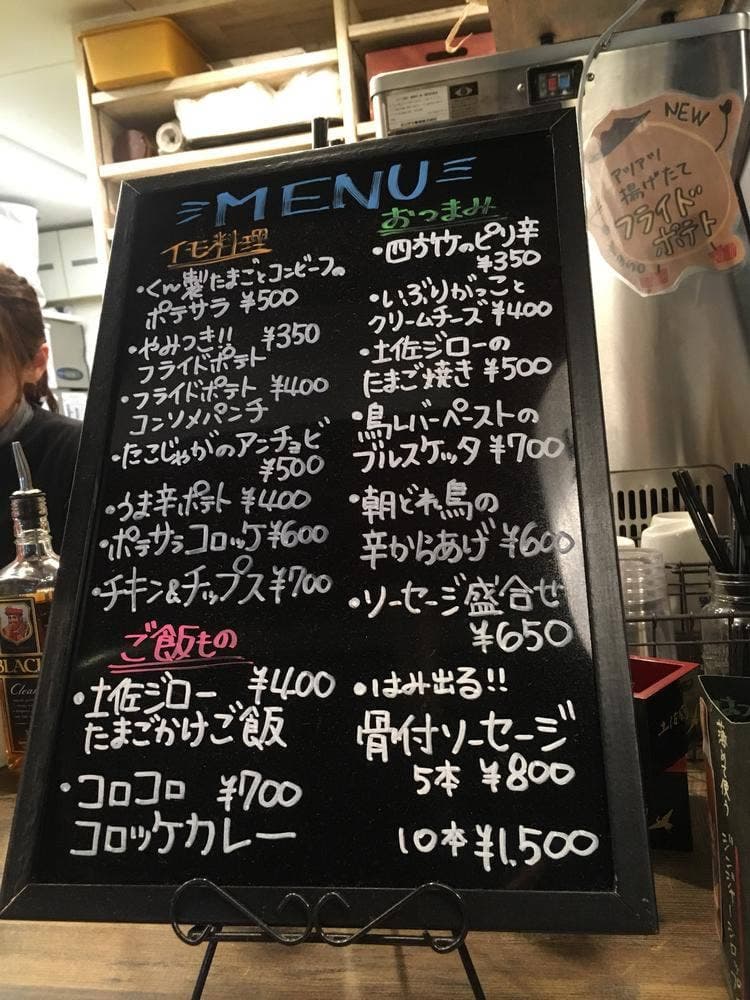 MENU
イモ料理
・くん製たまごとコンビーフの
ポテサラ ¥500
・やみつき!! ¥350
フライドポテト
・フライドポテト ¥400
コンソメパンチ
・たこじゃがのアンチョビ
¥500
・うま辛ポテト ¥400
・ポテサラコロッケ ¥600
・チキン&チップス ¥700
ご飯もの
・土佐ジロー ¥400
たまごかけご飯
・コロコロ ¥700
コロッケカレー
おつまみ
・四方竹のピリ辛
¥350
・いぶりがっこと
クリームチーズ ¥400
・土佐ジローの
たまご焼き ¥500
・鳥レバーペーストの
ブルスケッタ ¥700
・朝どれ鳥の
辛からあげ ¥600
・ソーセージ盛合せ
¥650
・はみ出る!!
骨付ソーセージ
5本 ¥800
10本 ¥1,500
NEW
アツアツ
揚げたて
フライド
ポテト
BLACK
Clear